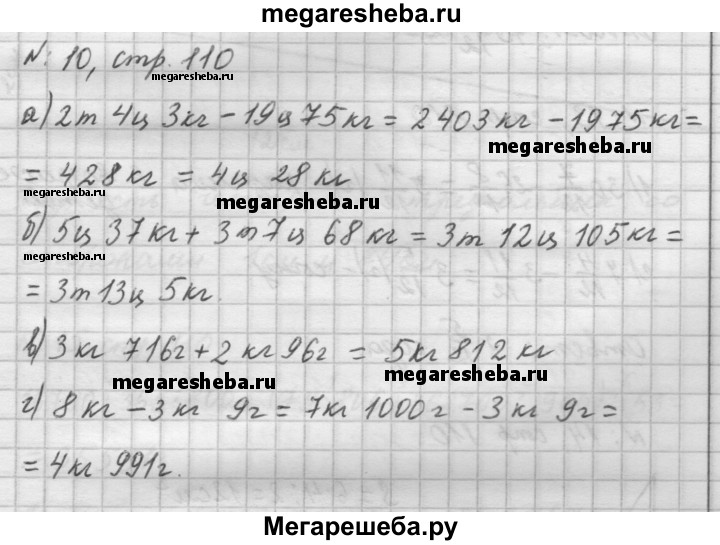 megaresheba.ru
№ 10, стр. 110
megaresheba.ru
а) 2т 4ц 3кг - 19ц 75кг = 2403кг - 1975кг =
megaresheba.ru
= 428кг = 4ц 28кг
megaresheba.ru
megaresheba.ru
б) 5ц 37кг + 3т 7ц 68кг = 3т 12ц 105кг =
megaresheba.ru
= 3т 13ц 5кг.
в) 3кг 716г + 2кг 96г = 5кг 812кг
megaresheba.ru
megaresheba.ru
г) 8кг - 3кг 9г = 7кг 1000г - 3кг 9г =
= 4кг 991г.
Мегарешеба.ру